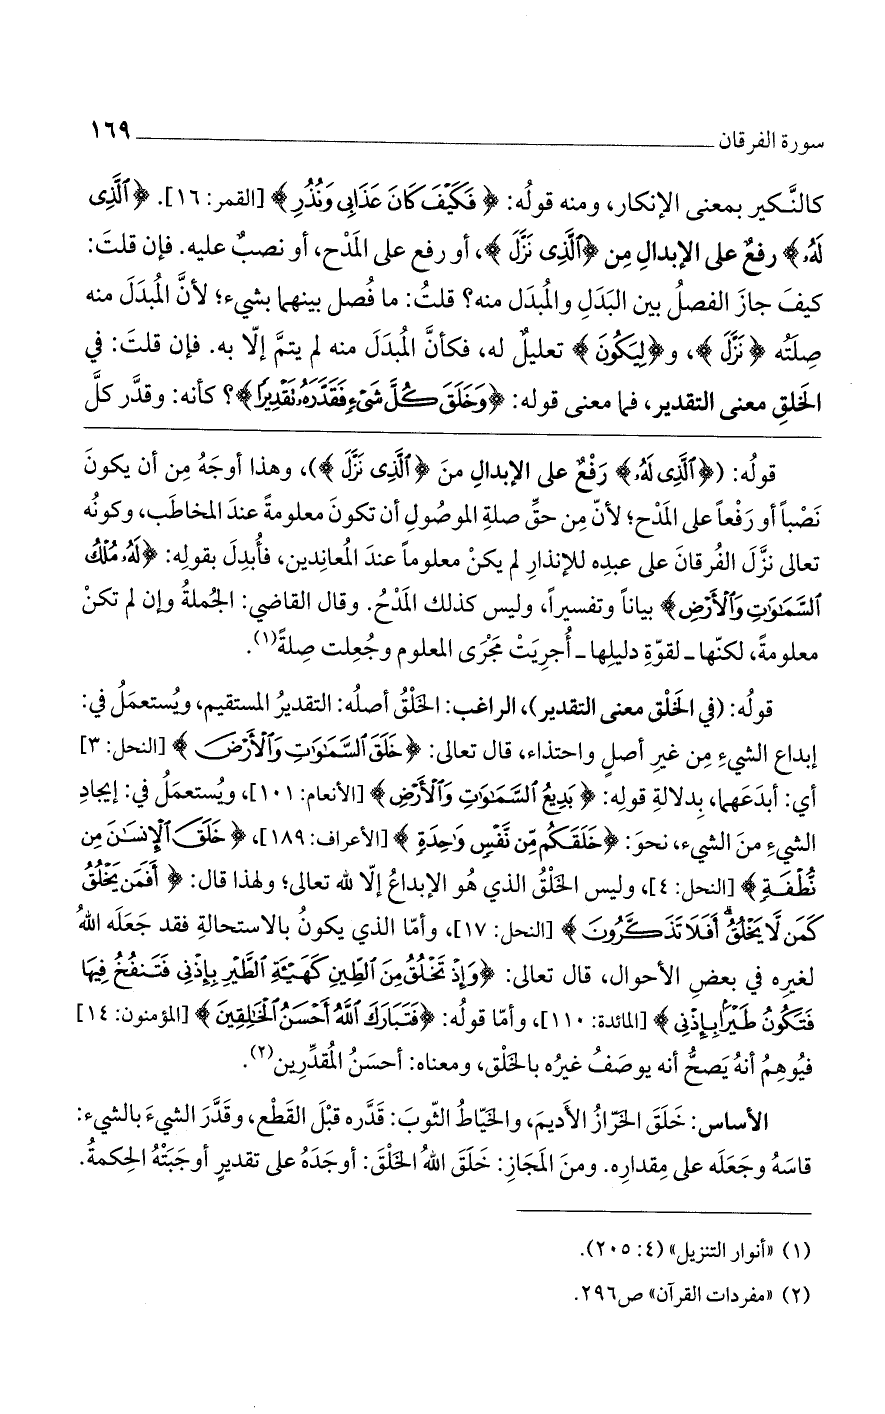 سورة الفرقان ١٦٩
كالنَّكير بمعنى الإنكار، ومنه قولُه: ﴿فَكَيْفَ كَانَ عَذَابِى وَنُذُرِ﴾ [القمر: ١٦]. ﴿ٱلَّذِى
لَهُۥ﴾ رفعٌ على الإبدالِ مِن ﴿ٱلَّذِى نَزَّلَ﴾، أو رفع على المَدْح، أو نصبٌ عليه. فإن قلتَ:
كيفَ جازَ الفصلُ بين البَدَلِ والمُبدَل منه؟ قلتُ: ما فُصل بينهما بشيء؛ لأنَّ المُبدَلَ منه
صِلَتُه ﴿نَزَّلَ﴾، و﴿لِيَكُونَ﴾ تعليلٌ له، فكأنَّ المُبدَلَ منه لم يتمَّ إلّا به. فإن قلتَ: في
الخَلقِ معنى التقدير، فما معنى قوله: ﴿وَخَلَقَ كُلَّ شَىْءٍ فَقَدَّرَهُۥ تَقْدِيرًا﴾؟ كأنه: وقدَّر كلَّ
قولُه: (﴿ٱلَّذِى لَهُۥ﴾ رَفْعٌ على الإبدالِ منَ ﴿ٱلَّذِى نَزَّلَ﴾)، وهذا أوجَهُ مِن أن يكونَ
نَصْباً أو رَفْعاً على المَدْح؛ لأنّ مِن حقِّ صلةِ الموصُولِ أن تكونَ معلومةً عندَ المخاطَب، وكونُه
تعالى نزَّلَ الفُرقانَ على عبدِه للإنذارِ لم يكنْ معلوماً عندَ المُعانِدين، فأُبدِلَ بقولِه: ﴿لَهُۥ مُلْكُ
ٱلسَّمَٰوَٰتِ وَٱلْأَرْضِ﴾ بياناً وتفسيراً، وليس كذلك المَدْحُ. وقال القاضي: الجُملةُ وإن لم تكنْ
معلومةً، لكنّها ـ لقوّةِ دليلِها ـ أُجرِيَتْ مَجْرَى المعلوم وجُعِلت صِلةً(١).
قولُه: (في الخَلْق معنى التقدير)، الراغب: الخَلْقُ أصلُه: التقديرُ المستقيم، ويُستعمَلُ في:
إبداع الشيءِ مِن غيرِ أصلٍ واحتذاء، قال تعالى: ﴿خَلَقَ ٱلسَّمَٰوَٰتِ وَٱلْأَرْضَ﴾ [النحل: ٣]
أي: أبدَعَهما، بِدلالةِ قولِه: ﴿بَدِيعُ ٱلسَّمَٰوَٰتِ وَٱلْأَرْضِ﴾ [الأنعام: ١٠١]، ويُستعمَلُ في: إيجادِ
الشيءِ منَ الشيء، نحوَ: ﴿خَلَقَكُم مِّن نَّفْسٍ وَٰحِدَةٍ﴾ [الأعراف: ١٨٩]، ﴿خَلَقَ ٱلْإِنسَٰنَ مِن
نُّطْفَةٍ﴾ [النحل: ٤]، وليس الخَلْقُ الذي هُو الإبداعُ إلّا لله تعالى؛ ولهذا قال: ﴿أَفَمَن يَخْلُقُ
كَمَن لَّا يَخْلُقُ ۗ أَفَلَا تَذَكَّرُونَ﴾ [النحل: ١٧]، وأمّا الذي يكونُ بالاستحالةِ فقد جَعَلَه اللهُ
لغيرِه في بعضِ الأحوال، قال تعالى: ﴿وَإِذْ تَخْلُقُ مِنَ ٱلطِّينِ كَهَيْـَٔةِ ٱلطَّيْرِ بِإِذْنِى فَتَنفُخُ فِيهَا
فَتَكُونُ طَيْرًۢا بِإِذْنِى﴾ [المائدة: ١١٠]، وأمّا قولُه: ﴿فَتَبَارَكَ ٱللَّهُ أَحْسَنُ ٱلْخَٰلِقِينَ﴾ [المؤمنون: ١٤]
فيُوهِمُ أنهُ يَصحُّ أنه يوصَفُ غيرُه بالخَلْق، ومعناه: أحسَنُ المُقدِّرين(٢).
الأساس: خَلَقَ الخَرّازُ الأديمَ، والخَيّاطُ الثّوبَ: قَدَّره قبْلَ القَطْع، وقَدَّرَ الشيءَ بالشيء:
قاسَهُ وجَعَلَه على مِقدارِه. ومنَ المَجَازِ: خَلَقَ اللهُ الخَلْقَ: أوجَدَهُ على تقديرٍ أوجَبَتْهُ الحِكمةُ.
(١) «أنوار التنزيل» (٤: ٢٠٥).
(٢) «مفردات القرآن» ص٢٩٦.